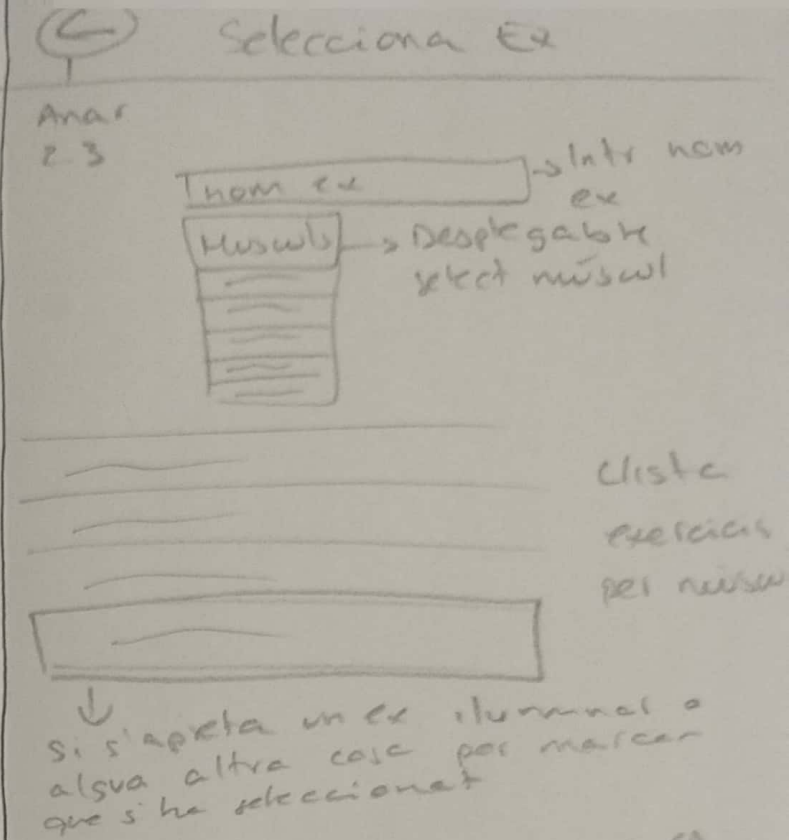 Selecciona Ex
Anar
2.3
nom ex
→ Intr nom
ex
Musculs
→ Desplegable
select múscul
Llista
exercicis
per múscu
↓
si s'apreta un ex iluminar o
algua altra cosa per marcar
que s'ha seleccionat